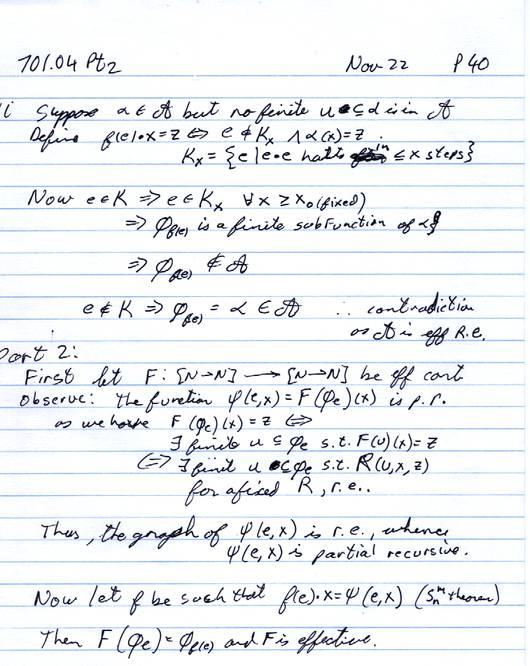 701.04 Pt 2 Nov 22 P 40
ii Suppose α ∈ 𝒜 but no finite u ⊆ α is in 𝒜
Define f(e)•x = z ⇔ e ∉ Kₓ ∧ α(x) = z.
Kₓ = {e | e•e halts in ≤ x steps}
Now e ∈ K ⇒ e ∈ Kₓ ∀x ≥ x₀ (fixed)
⇒ φ_f(e) is a finite subfunction of α
⇒ φ_f(e) ∉ 𝒜
e ∉ K ⇒ φ_f(e) = α ∈ 𝒜 ∴ contradiction
as 𝒜 is eff R.e.
Part 2:
First let F: [N→N] ⟶ [N→N] be eff cont
Observe: the function ψ(e,x) = F(φₑ)(x) is p.r.
as we have F(φₑ)(x) = z ⇔
∃ finite u ⊆ φₑ s.t. F(u)(x) = z
⇔ ∃ finit u ⊆ φₑ s.t. R(u,x,z)
for a fixed R, r.e..
Thus, the graph of ψ(e,x) is r.e., whence
ψ(e,x) is partial recursive.
Now let f be such that f(e)•x = ψ(e,x) (Sₙᵐ theorem)
Then F(φₑ) = φ_f(e) and F is effective.